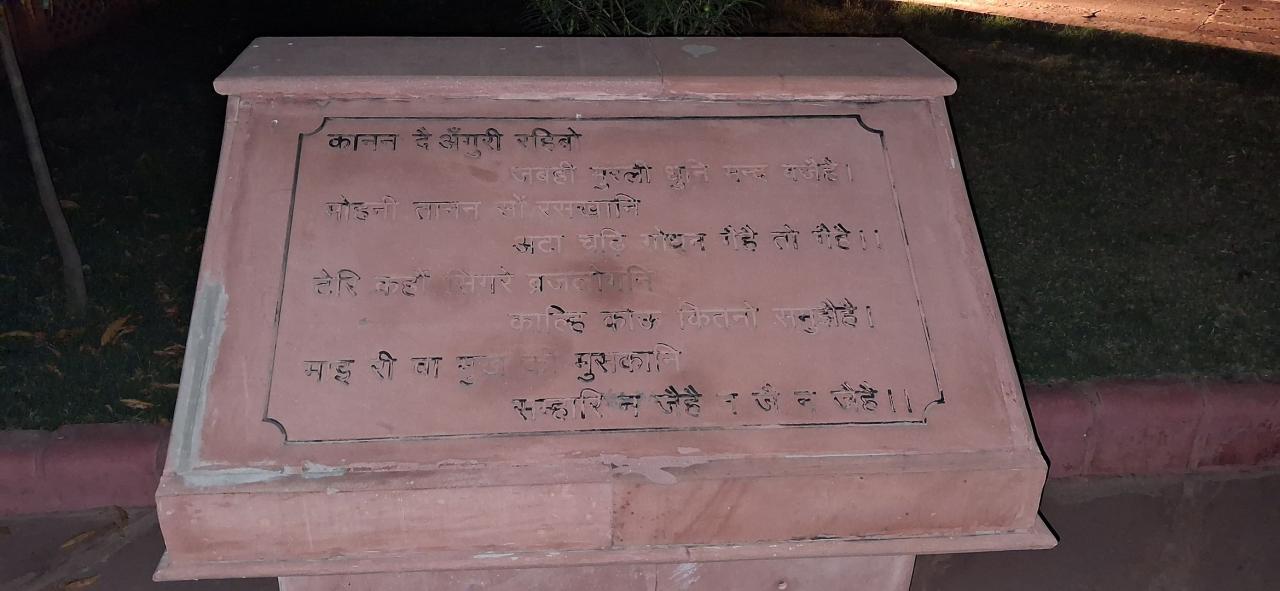 कानन दै अँगुरी रहिबो
जबही मुरली धुनि मन्द बजैहै।
मोहनी तानन सों रसखानि
अटा चढ़ि गोधन गैहै तो गैहै।।
टेरि कहौं सिगरे ब्रजलोगनि
काल्हि कोऊ कितनो समुझैहै।
माइ री वा मुख की मुसकानि
सम्हारि न जैहै न जै न जैहै।।